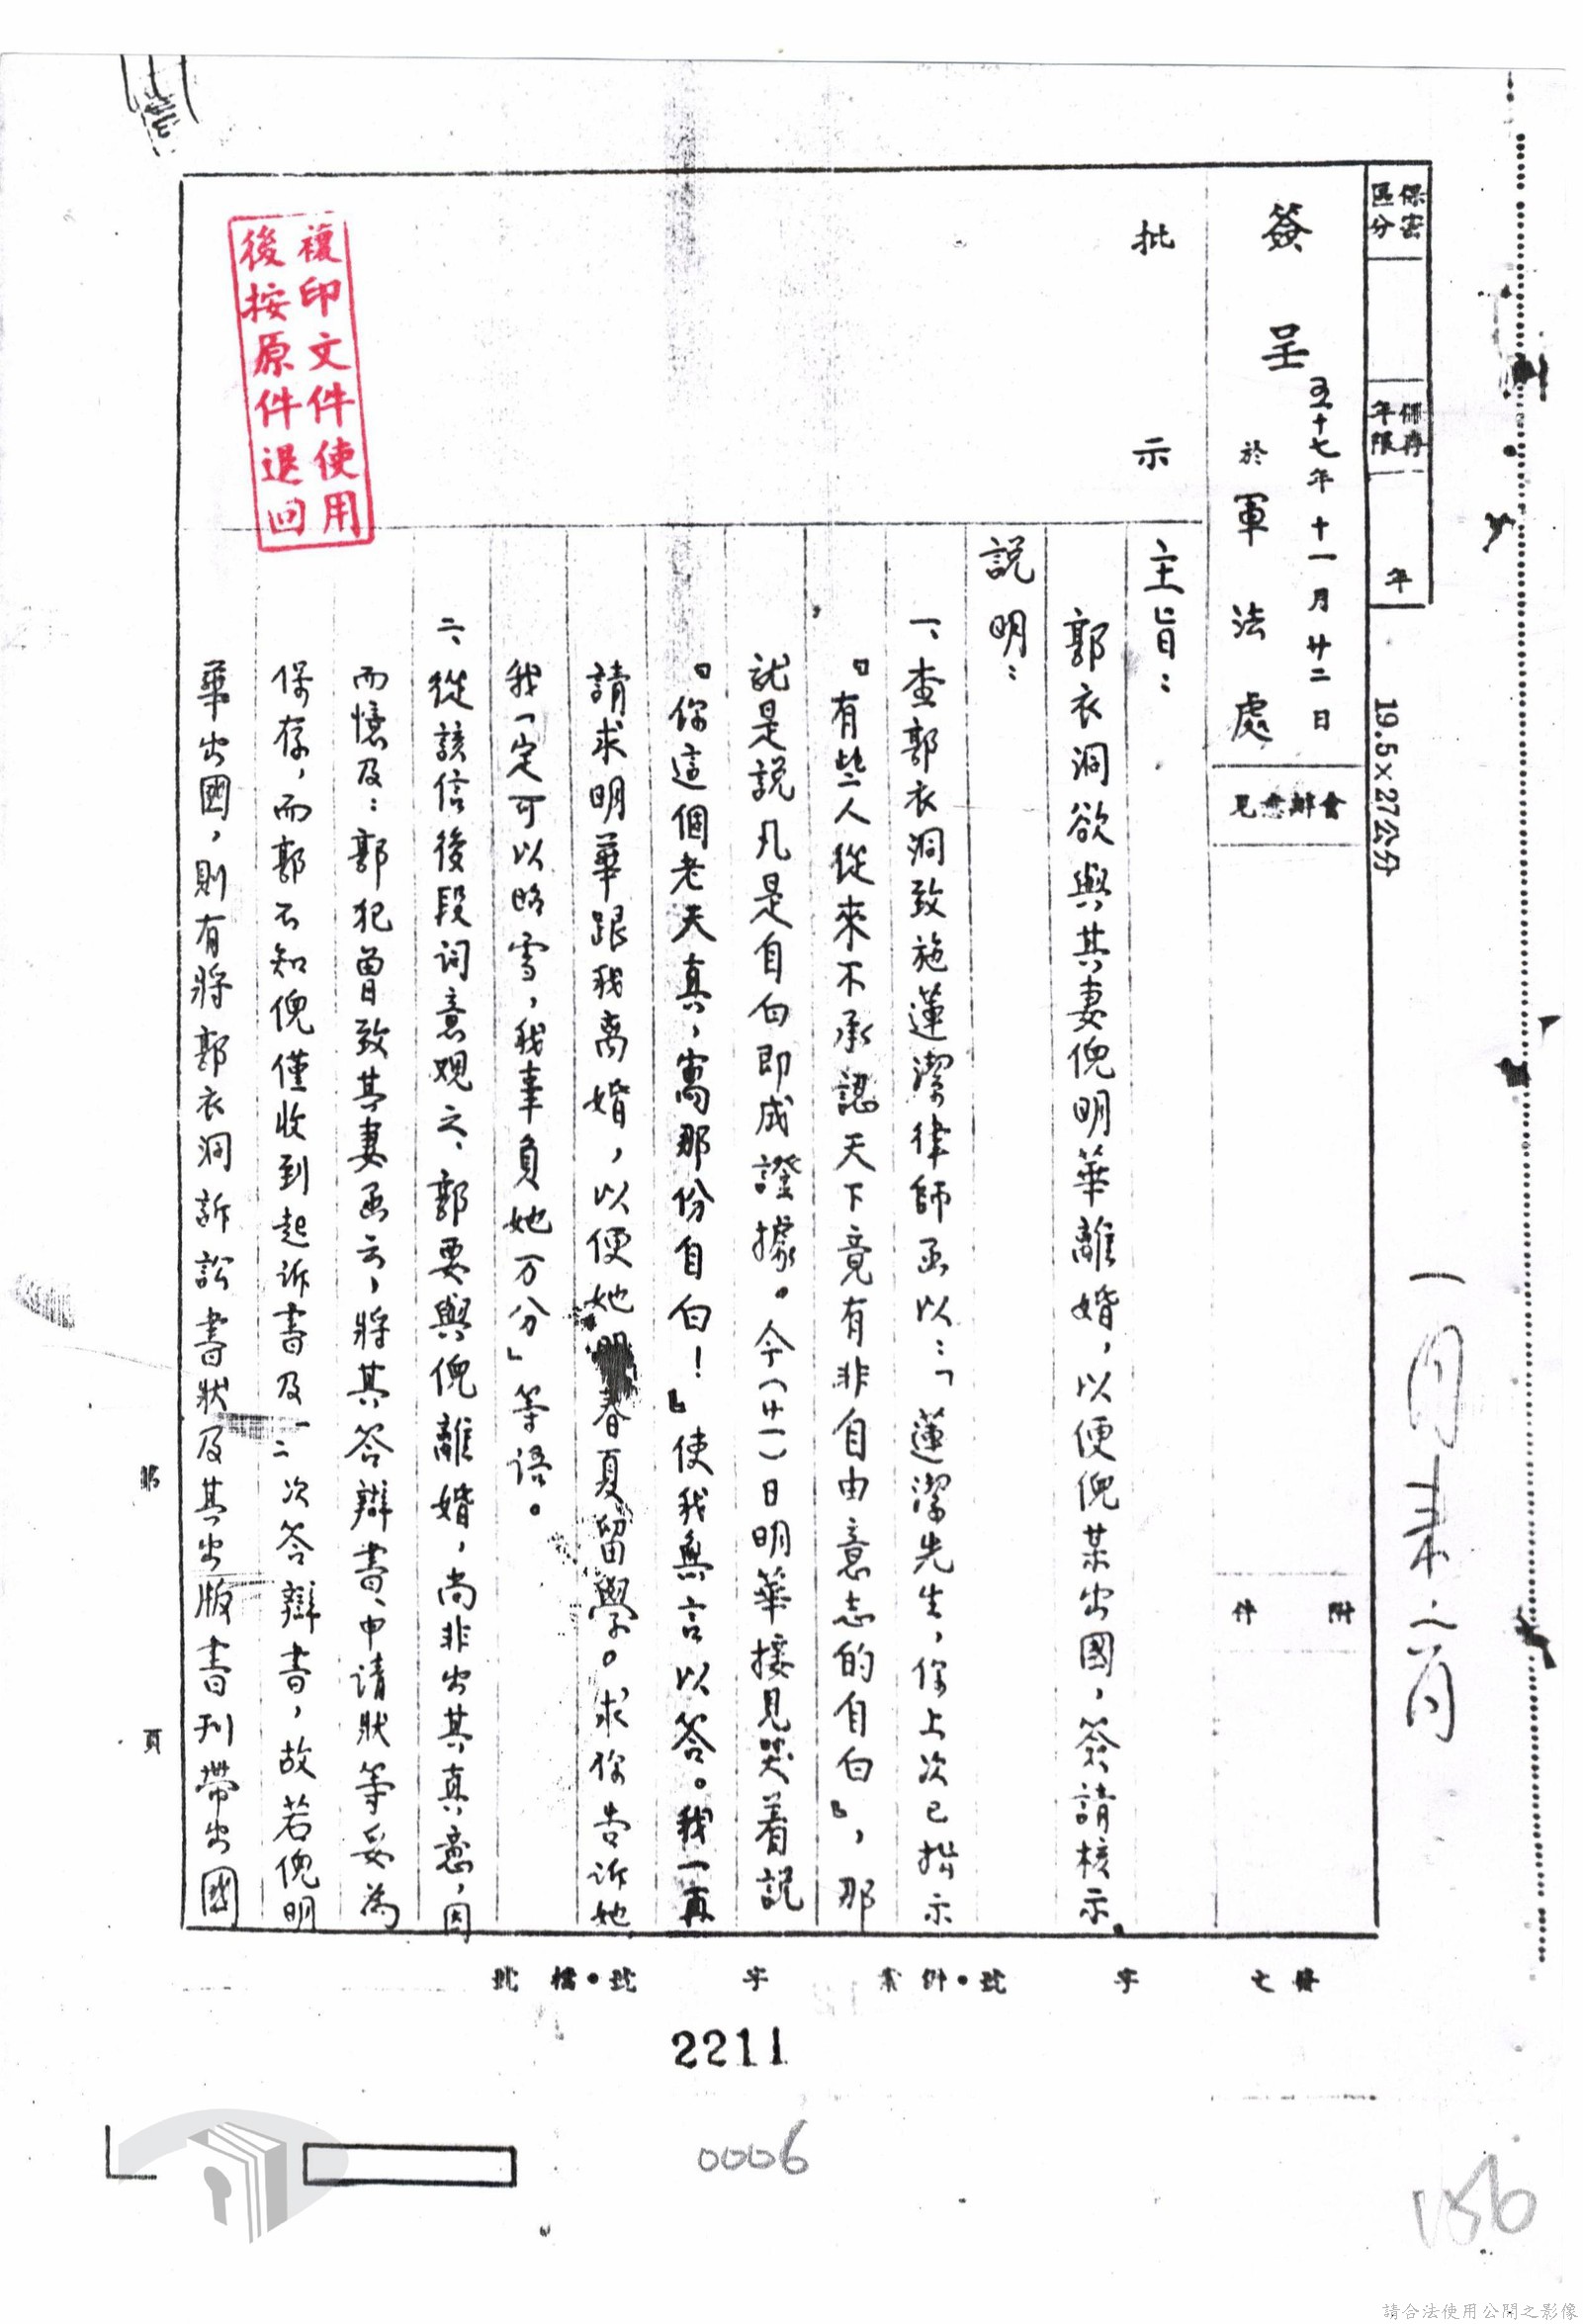 保密
區分
保存
年限
年
19.5×27公分
簽呈
五十七年十一月廿二日
於軍法處
會辦意見
附件
批示
主旨：
郭衣洞欲與其妻倪明華離婚，以便倪某出國，簽請核示。
說明：
一、查郭衣洞致施蓮潔律師函以：「蓮潔先生，你上次已指示
『有些人從來不承認天下竟有非自由意志的自白』，那
就是說凡是自白即成證據。今（廿一）日明華接見哭着說
『你這個老天真，寫那份自白！』使我無言以答。我一再
請求明華跟我离婚，以便她明春夏留學。求你告訴她
我一定可以昭雪，我辜負她万分」等语。
二、從該信後段词意观之、郭要與倪離婚，尚非出其真意，因
而憶及：郭犯曾致其妻函云，將其答辯書、申请狀等妥為
保存，而郭不知倪僅收到起诉書及一二次答辯書，故若倪明
華出國，則有將郭衣洞訴訟書狀及其出版書刊帶出國
複印文件使用
後按原件退回
第
頁
發文
字
號
附案
字
號
檔號
2211
0006
156
請合法使用公開之影像